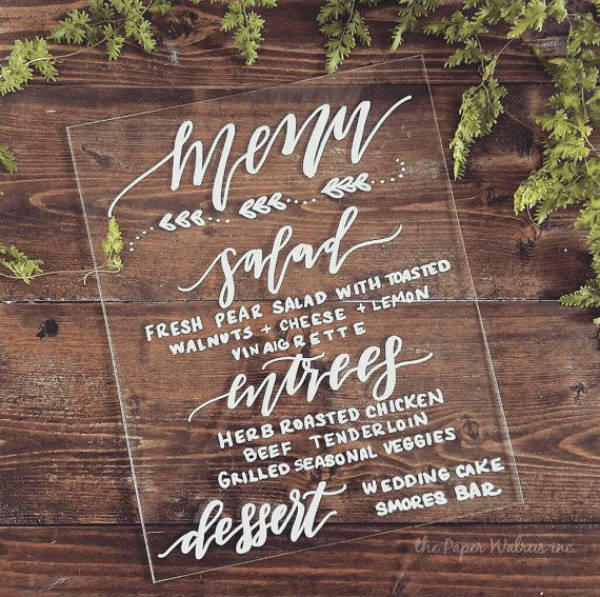 menu
salad
FRESH PEAR SALAD WITH TOASTED
WALNUTS + CHEESE + LEMON
VINAIGRETTE
entrees
HERB ROASTED CHICKEN
BEEF TENDERLOIN
GRILLED SEASONAL VEGGIES
dessert
WEDDING CAKE
SMORES BAR
the Paper Walrus inc.